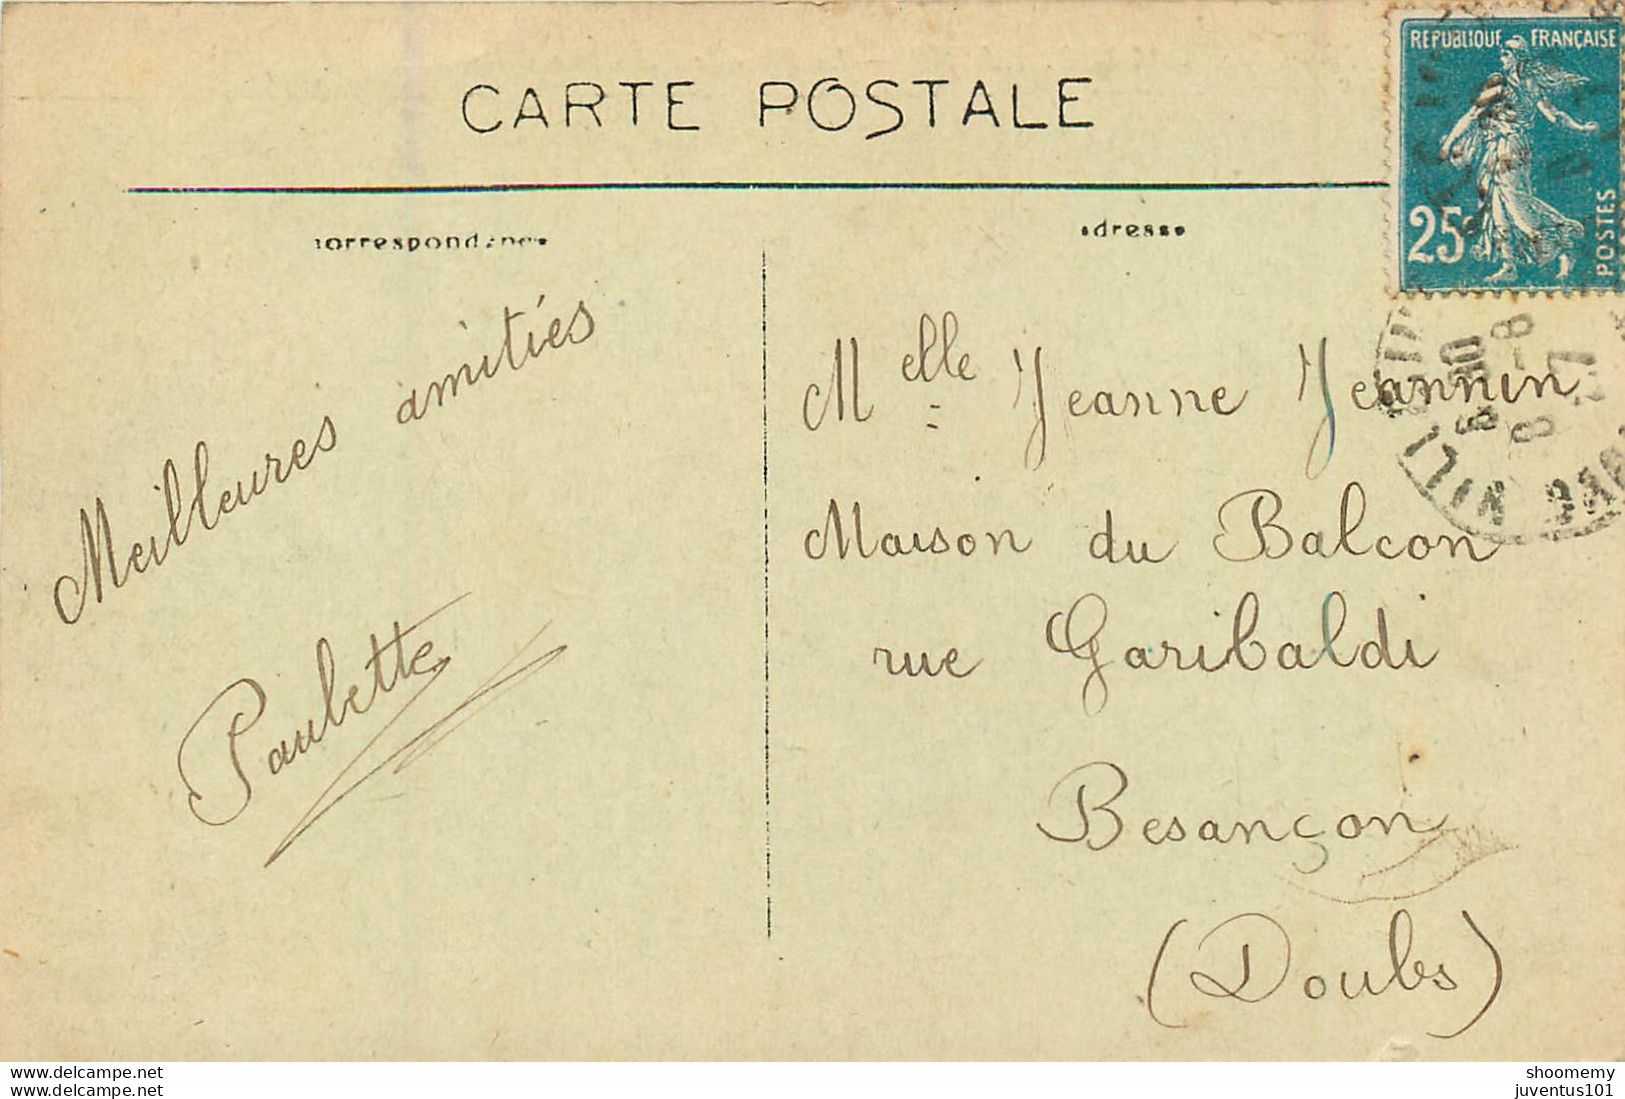 CARTE POSTALE
RÉPUBLIQUE FRANÇAISE
25c
POSTES
correspondance
adresse
Meilleures amitiés
Paulette
Melle Jeanne Jeannin
Maison du Balcon
rue Garibaldi
Besançon
(Doubs)
www.delcampe.net
www.delcampe.net
shoomemy
juventus101